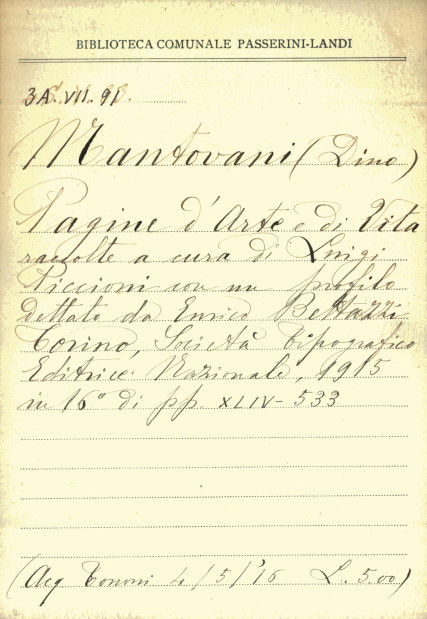 BIBLIOTECA COMUNALE PASSERINI-LANDI
3A. VII. 91.
Mantovani (Dino)
Pagine d'Arte e di Vita
raccolte a cura di Luigi
Piccioni con un profilo
dettato da Enrico Bettazzi
Torino, Società Tipografico
Editrice Nazionale, 1915
in 16° di pp. XLIV-533
(Acq Tononi 4/5/'16 L. 5.00)